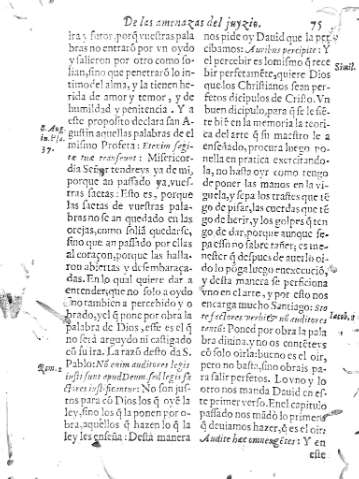 De las amenazas del juyzio. 75
ira y furor, porq̃ vuestras pala
bras no entraró por vn oydo
y salieron por otro como so-
lian, sino que penetraró lo in-
timo del alma, y la tienen he-
rida de amor y temor, y de
humildad y penitencia. Y a
este proposito declara san A-
gustin aquellas palabras de el
mismo Profera: Etenim sagi-
te tuæ transeunt: Misericor-
dia Señor tendreys ya de mi,
porque an passado ya, vues-
tras saetas: Esto es, porque
las saetas de vuestras pala-
bras no se an quedado en las
orejas, como soliã quedarse,
sino que an passado por ellas
al coraçon, porque las halla-
rou abiertas y desembaraça-
das. En lo qual quiere dar a
entender, que no solo a oydo
no tambien a percebido y o
brado, yel q̃ pone por obra la
palabra de Dios, esse es el q̃
no será arguydo ni castigado
cō su ira. La razō desto da S.
Pablo: Nõ enim auditores legis
iusti sunt apud Deum sed legis fa
ctores iustificentur: No son jus-
tos para cō Dios los q̃ oyẽ la
ley, sino los q̃ la ponen por o-
bra, aquellos q̃ hazen lo q̃ la
ley les enseña: Desta manera
2. Aug.
in. Psa.
37.
Rom. 2
nos pide oy Dauid que la per
cibamos: Auribus percipite: Y
el percebir es lo mismo q̃ rece
bir perfetamẽte, quiere Dios
que los Christianos sean per-
fetos dicipulos de Cristo. Vn
buen dicipulo, para q̃ se le siẽ
te biẽ en la memoria la teori-
ca del arte q̃ su maestro le a
enseñado, procura luego po-
nella en pratica exercitando-
la, no basta oyr como tengo
de poner las manos en la vi-
guela, y sepa los trastes que tẽ
go de pisar, las cuerdas que tẽ
go de herir, y los golpes q̃ ten
go de dar, porque aunque se-
pa esso no sabre tañer, es me-
nester q̃ despues de auerlo oi-
do lo põga luego en execuciō,
y desta manera se perficiona
vno en el arte, y por esto nos
encarga mucho Santiago: Sto
te factores verbi & nõ auditores
tantũ: Poned por obra la pala
bra diuina, y no os contẽteys
cō solo oirla: bueno es el oir,
pero no basta, sino obrais pa-
ra salir perfetos. Lo vno y lo
otro nos manda Dauid en es-
te primer verso. En el capitulo
passado nos mādō lo primero
q̃ diuanos, enseñando q̃ es el oir.
Audite hæc omnes gẽtes: Y en
este
Simil.
Iacob. 1